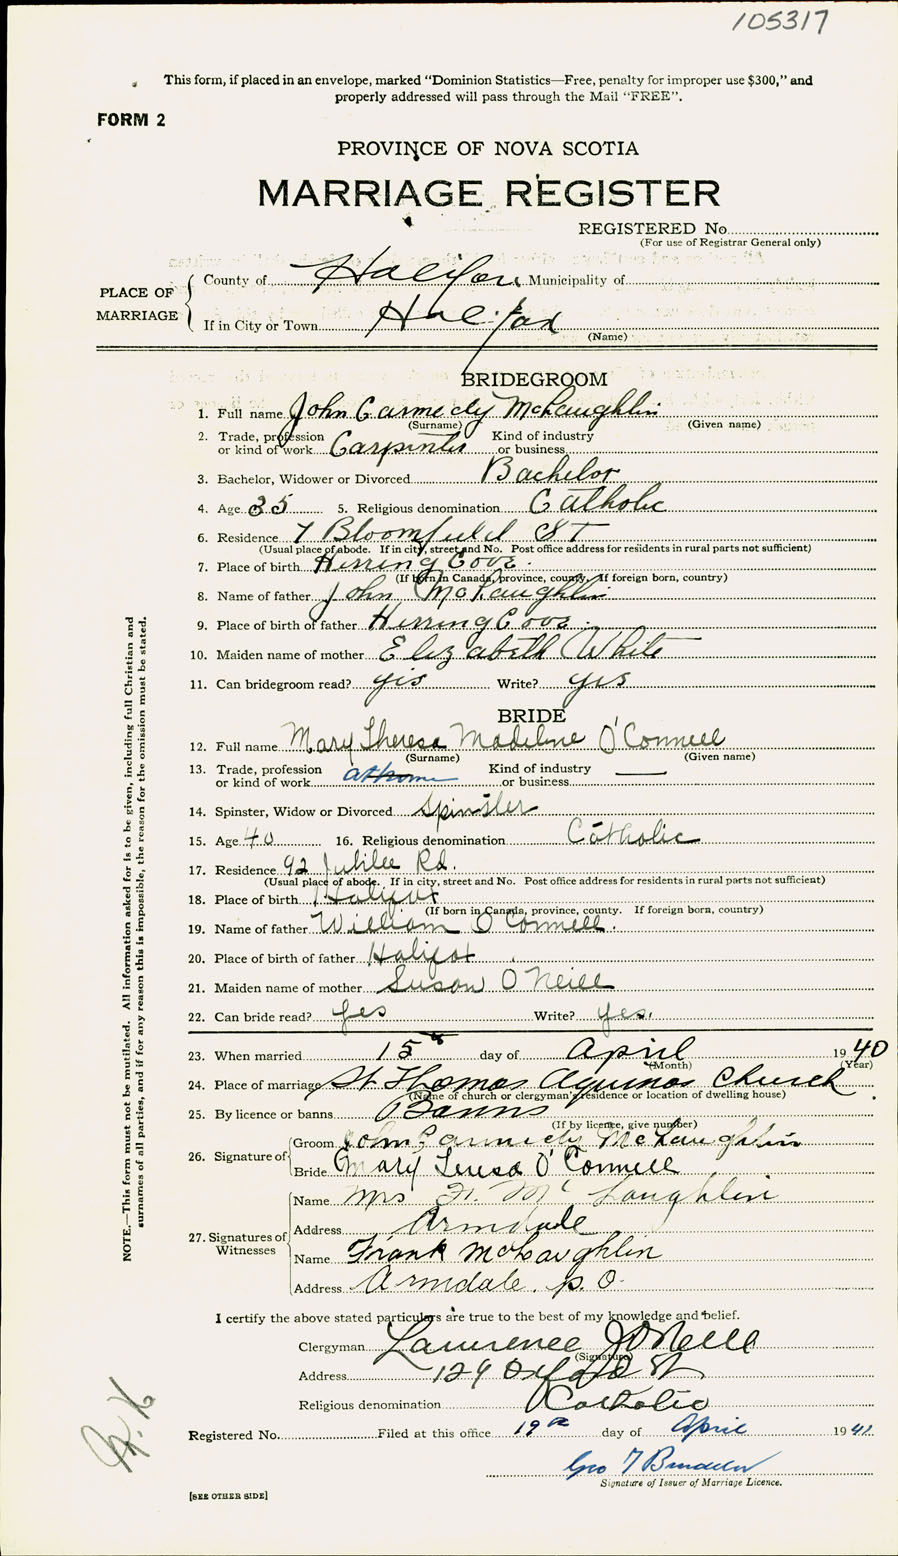 105317
This form, if placed in an envelope, marked "Dominion Statistics—Free, penalty for improper use $300," and
properly addressed will pass through the Mail "FREE".
FORM 2
PROVINCE OF NOVA SCOTIA
MARRIAGE REGISTER
REGISTERED No.
(For use of Registrar General only)
PLACE OF MARRIAGE
County of Halifax Municipality of
If in City or Town Halifax
(Name)
BRIDEGROOM
1. Full name John Carmedy McLaughlin
(Surname) (Given name)
2. Trade, profession or kind of work Carpenter Kind of industry or business
3. Bachelor, Widower or Divorced Bachelor
4. Age 35 5. Religious denomination Catholic
6. Residence 7 Bloomfield ST
(Usual place of abode. If in city, street and No. Post office address for residents in rural parts not sufficient)
7. Place of birth Herring Cove.
(If born in Canada, province, county. If foreign born, country)
8. Name of father John McLaughlin
9. Place of birth of father Herring Cove.
10. Maiden name of mother Elizabeth White
11. Can bridegroom read? yes Write? yes
BRIDE
12. Full name Mary Theresa Madeline O'Connell
(Surname) (Given name)
13. Trade, profession or kind of work at home Kind of industry or business —
14. Spinster, Widow or Divorced Spinster
15. Age 40 16. Religious denomination Catholic
17. Residence 92 Jubilee Rd.
(Usual place of abode. If in city, street and No. Post office address for residents in rural parts not sufficient)
18. Place of birth Halifax
(If born in Canada, province, county. If foreign born, country)
19. Name of father William O'Connell.
20. Place of birth of father Halifax
21. Maiden name of mother Susan O'Neill
22. Can bride read? Yes Write? Yes.
23. When married 15th day of April 1940
(Month) (Year)
24. Place of marriage St Thomas Aquinas Church.
(Name of church or clergyman's residence or location of dwelling house)
25. By licence or banns Banns
(If by licence, give number)
26. Signature of
Groom John Carmedy McLaughlin
Bride Mary Teresa O'Connell
27. Signatures of Witnesses
Name Mrs F. McLaughlin
Address Armdale
Name Frank McLaughlin
Address Armdale. P.O.
I certify the above stated particulars are true to the best of my knowledge and belief.
Clergyman Lawrence J O'Neill
(Signature)
Address 129 Oxford St
Religious denomination Catholic
Registered No. Filed at this office 19th day of April 194
Geo
Signature of Issuer of Marriage Licence.
[SEE OTHER SIDE]
NOTE.—This form must not be mutilated. All information asked for is to be given, including full Christian and
surnames of all parties, and if for any reason this is impossible, the reason for the omission must be stated.